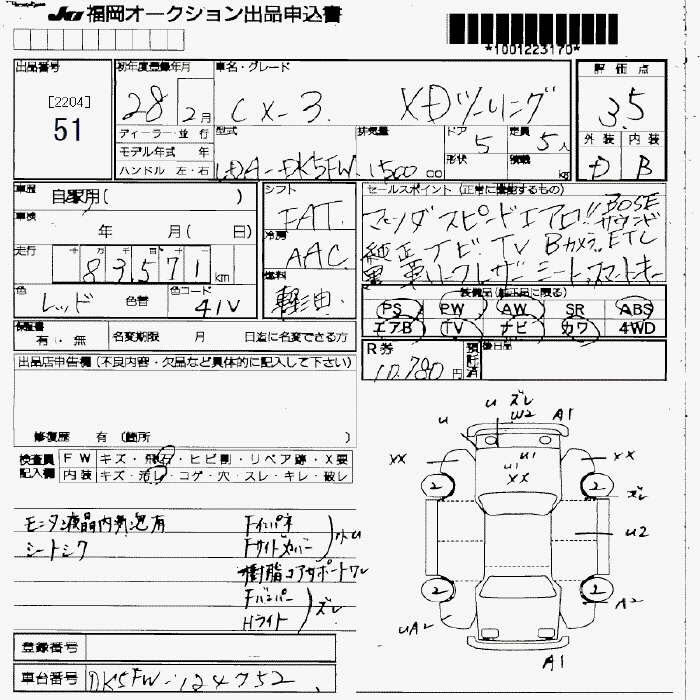 JU 福岡オークション出品申込書
*1001223170*
出品番号
[2204]
51
初年度登録年月
28 2月
車名・グレード
CX-3 XDツーリング
評価点
3.5
外装 内装
D B
ディーラー・並行
モデル年式 年
ハンドル 左・右
型式
LDA-DK5FW
排気量
1500 cc
ドア
5
形状
定員
5人
積載
kg
車歴
自家用( )
車検
年 月( 日)
走行
十 万 千 百 十 一
83571 km
色
レッド
色替
色コード
41V
シフト
FAT
冷房
AAC
燃料
軽油
セールスポイント (正常に機能するもの)
マツダスピードエアロ!! BOSEサウンド
純正ナビ TV Bカメラ ETC
黒革 スマートキー
装備品(純正品に限る)
PS PW AW SR ABS
エアB TV ナビ カワ 4WD
保証書
有・無
名変期限 月 日迄に名変できる方
R券
10,780円
預託済
後日品
出品店申告欄(不良内容・欠品など具体的に記入して下さい)
修復歴 有 (箇所 )
検査員記入欄
FW キズ・飛石・ヒビ割・リペア跡・X要
内装 キズ・汚レ・コゲ・穴・スレ・キレ・破レ
モニター液晶内気泡有
シートシワ
Fインパネ
Fサイドカバー
樹脂コアサポートワレ
Fバンパー
Hライト
ズレ
u
u
ズレ
W2
A1
u1
u1
XX
XX
XX
2
2
ズレ
u2
2
2
A2
uA2
A1
登録番号
車台番号
DK5FW-124752